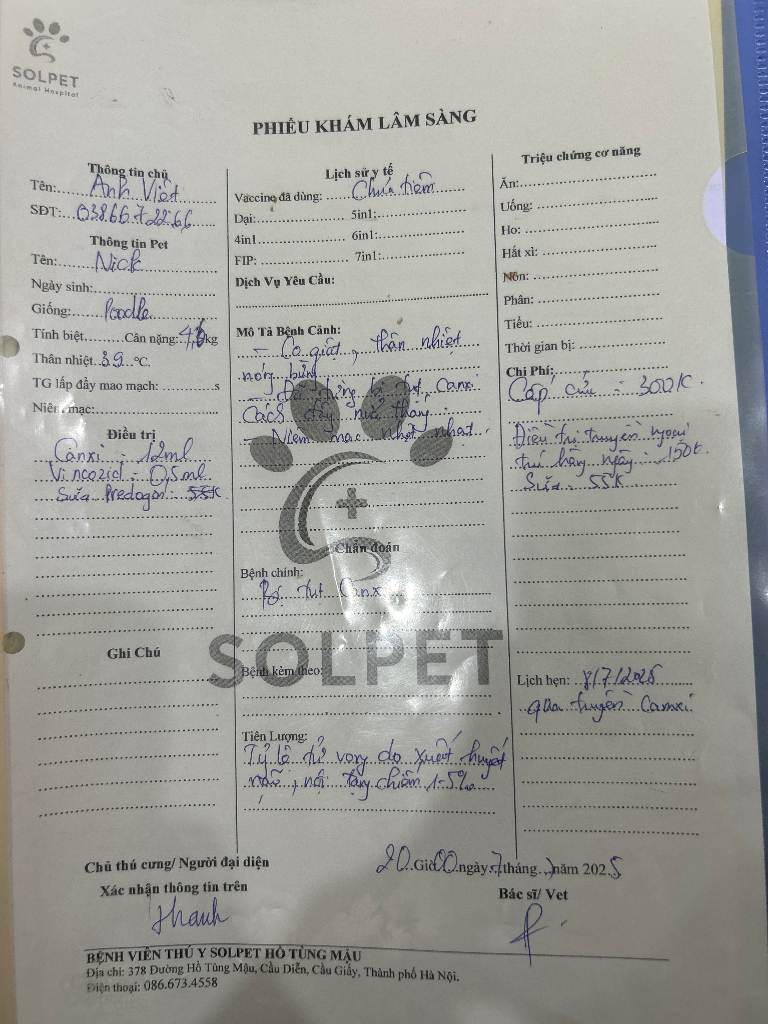 SOLPET
Animal Hospital
PHIẾU KHÁM LÂM SÀNG
Thông tin chủ
Tên: Anh Việt
SĐT: 03866722.66
Thông tin Pet
Tên: Nick
Ngày sinh:
Giống: Poodle
Tính biệt Cân nặng: 4,6 kg
Thân nhiệt 39 °C.
TG lấp đầy mao mạch: s
Niêm mạc:
Điều trị
Canxi : 12ml
Vincozid : 0,5ml
Sữa Predogen : 55K
Ghi Chú
Lịch sử y tế
Vaccine đã dùng: Chưa tiêm
Dại: 5in1:
4in1 6in1:
FIP: 7in1:
Dịch Vụ Yêu Cầu:
Mô Tả Bệnh Cảnh:
- Co giật, thân nhiệt
nóng
- Đã từng bị tụt Canxi
Cách đây nửa tháng
- Niêm mạc nhợt nhạt.
Chẩn đoán
Bệnh chính:
Bị tụt Canxi
SOLPET
Bệnh kèm theo:
Tiên Lượng:
Tỷ lệ tử vong do xuất huyết
não, nội tạng chiếm 1-5%
Triệu chứng cơ năng
Ăn:
Uống:
Ho:
Hắt xì:
Nôn:
Phân:
Tiểu:
Thời gian bị:
Chi Phí:
Cấp cứu : 300K.
Điều trị truyền ngoại
trú hằng ngày : 150K.
Sữa : 55K
Lịch hẹn: 8/7/2025
qua truyền Canxi
20 Giờ 00 ngày 7 tháng 7 năm 2025
Chủ thú cưng/ Người đại diện
Xác nhận thông tin trên
Bác sĩ/ Vet
Thanh
BỆNH VIỆN THÚ Y SOLPET HỒ TÙNG MẬU
Địa chỉ: 378 Đường Hồ Tùng Mậu, Cầu Diễn, Cầu Giấy, Thành phố Hà Nội.
Điện thoại: 086.673.4558